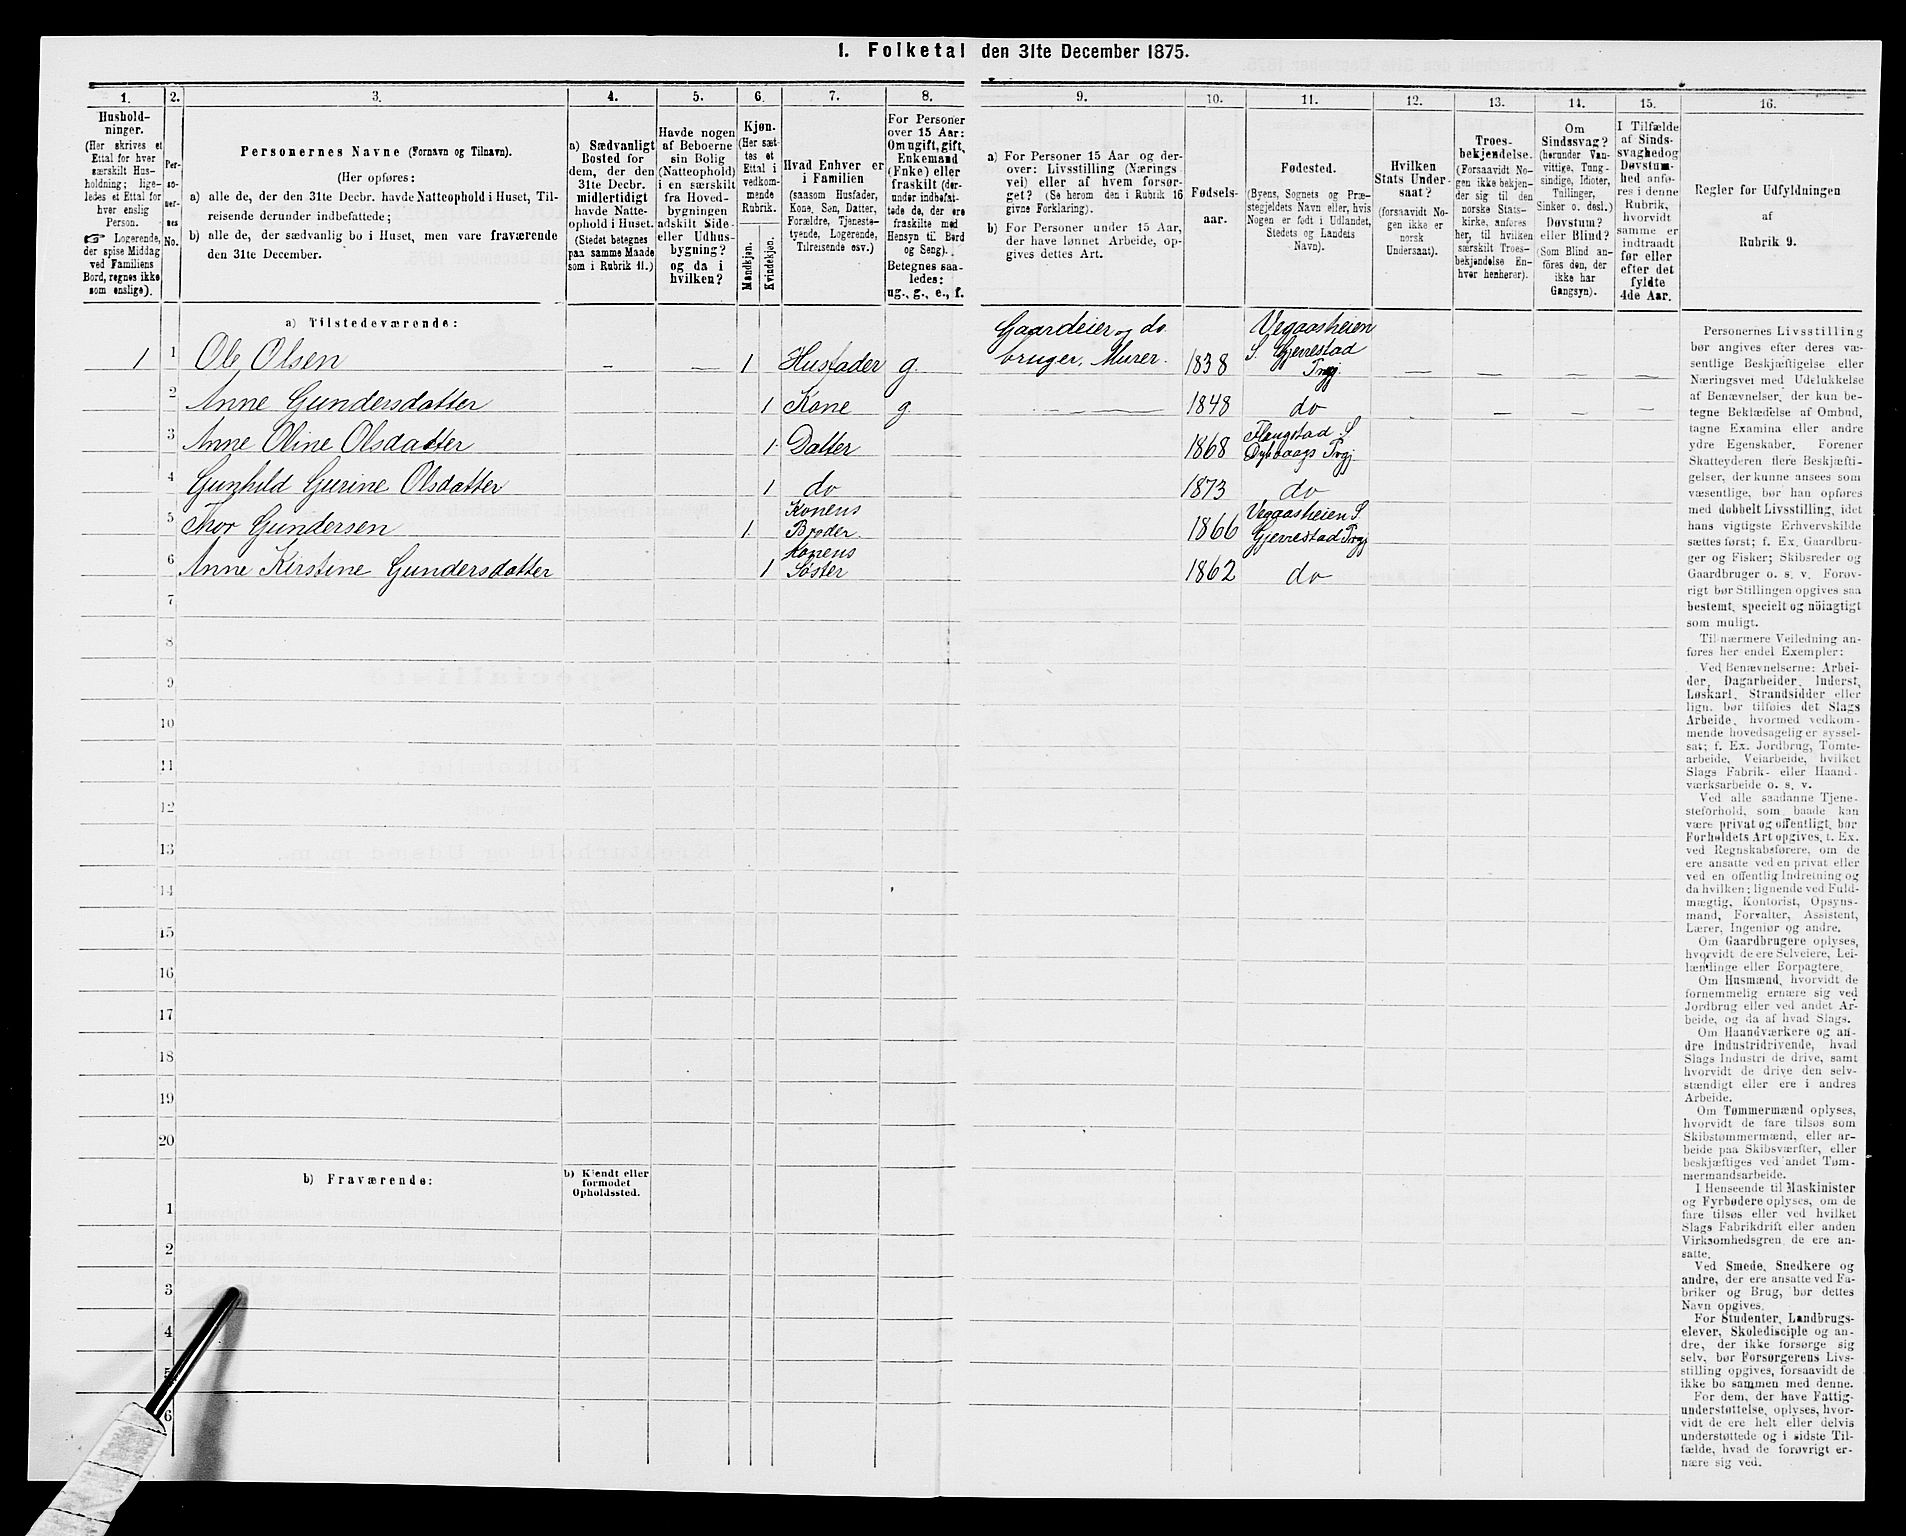 1. Folketal den 31te December 1875.
1. 2. 3. 4. 5. 6. 7. 8. 9. 10. 11. 12. 13. 14. 15. 16.
Hushold-
ninger.
(Her skrives et
Ettal for hver
særskilt Hus-
holdning; lige-
ledes et Ettal for
hver enslig
Person.
Logerende,
der spise Middag
ved Familiens
Bord, regnes ikke
som enslige).
Per-
so-
ner-
nes
No.
Personernes Navne (Fornavn og Tilnavn).
(Her opføres:
a) alle de, der den 31te Decbr. havde Natteophold i Huset, Til-
reisende derunder indbefattede;
b) alle de, der sædvanlig bo i Huset, men vare fraværende
den 31te December.
a) Sædvanligt
Bosted for
dem, der den
31te Decbr.
midlertidigt
havde Natte-
ophold i Huset.
(Stedet betegnes
paa samme Maade
som i Rubrik 11.)
Havde nogen
af Beboerne
sin Bolig
(Natteophold)
i en særskilt
fra Hoved-
bygningen
adskilt Side-
eller Udhus-
bygning?
og da i
hvilken?
Kjøn.
(Her sæt-
tes et
Ettal i
vedkom-
mende
Rubrik.
Mandkjøn.
Kvindekjøn.
Hvad Enhver er
i Familien
(saasom Husfader,
Kone, Søn, Datter,
Forældre, Tjeneste-
tyende, Logerende,
Tilreisende osv.)
For Personer
over 15 Aar:
Om ugift, gift,
Enkemand
(Enke) eller
fraskilt (der-
under indbefat-
tede de, der ere
fraskilte med
Hensyn til Bord
og Seng).
Betegnes saa-
ledes:
ug., g., e., f.
a) For Personer 15 Aar og der-
over: Livsstilling (Nærings
vei) eller af hvem forsør-
get? (Se herom den i Rubrik 16
givne Forklaring).
b) For Personer under 15 Aar,
der have lønnet Arbeide, op-
gives dettes Art.
Fødsels-
aar.
Fødested.
(Byens, Sognets og Præ-
stegjeldets Navn eller, hvis
Nogen er født i Udlandet,
Stedets og Landets
Navn).
Hvilken
Stats Under-
saat?
(forsaavidt No-
gen ikke er
norsk
Undersaat).
Troes-
bekjendelse.
(Forsaavidt No-
gen ikke bekjen-
der sig til den
norske Stats-
kirke, anføres
her, til hvilken
særskilt Troes-
bekjendelse En-
hver henhører).
Om
Sindssvag?
(herunder Van-
vittige, Tung-
sindige, Idioter,
Tullinger,
Sinker o. desl.)
Døvstum?
eller Blind?
(Som Blind an-
føres den, der
ikke har
Gangsyn).
I Tilfælde
af Sinds-
svaghed og
Døvstum-
hed anfø-
res i denne
Rubrik,
hvorvidt
samme er
indtraadt
før eller
efter det
fyldte
4de Aar.
Regler for Udfyldningen
af
Rubrik 9.
a) Tilstedeværende:
1 1 Ole Olsen – — 1 Husfader g. Gaardeier og do. bruger, Murer. 1838 Vegaasheien S. Gjerrestad Prgj. — — — —
2 Anne Gundersdatter 1 Kone g. 1848 do — — — —
3 Anne Oline Olsdatter 1 Datter 1868 S. Dybvaags Prgj.
4 Gunhild Gurine Olsdatter 1 do 1873 do
5 Thor Gundersen 1 Konens Broder 1866 Vegaasheien S Gjerrestad Prgj
6 Anne Kirstine Gundersdatter 1 Konens Søster 1862 do
7
8
9
10
11
12
13
14
15
16
17
18
19
20
b) Fraværende:
b) Kjendt eller
formodet
Opholdssted.
1
2
3
4
5
6
Personernes Livsstilling
bør angives efter deres væ-
sentlige Beskjæftigelse eller
Næringsvei med Udelukkelse
af Benævnelser, der kun be-
tegne Beklædelse af Ombud,
tagne Examina eller andre
ydre Egenskaber. Forener
Skatteyderen flere Beskjæfti-
gelser, der kunne ansees som
væsentlige, bør han opføres
med dobbelt Livsstilling, idet
hans vigtigste Erhvervskilde
sættes først; f. Ex. Gaardbru-
ger og Fisker; Skibsreder og
Gaardbruger o. s. v. Forøv-
rigt bør Stillingen opgives saa
bestemt, specielt og nöiagtigt
som muligt.
Til nærmere Veiledning an-
føres her endel Exempler:
Ved Benævnelserne: Arbei-
der, Dagarbeider, Inderst,
Løskarl, Strandsidder eller
lign. bør tilføies det Slags
Arbeide, hvormed vedkom-
mende hovedsagelig er syssel-
sat; f. Ex. Jordbrug, Tomte-
arbeide, Veiarbeide, hvilket
Slags Fabrik- eller Haand-
værksarbeide o. s. v.
Ved alle saadanne Tjene-
steforhold, som baade kan
være privat og offentligt, bør
Forholdets Art opgives, f. Ex.
ved Regnskabsførere, om de
ere ansatte ved en privat eller
ved en offentlig Indretning og
da hvilken; lignende ved Fuld-
mægtig, Kontorist, Opsyns-
mand, Forvalter, Assistent,
Lærer, Ingeniør og andre.
Om Gaardbrugere oplyses,
hvorvidt de ere Selveiere, Lei-
lændinge eller Forpagtere.
Om Husmænd, hvorvidt de
fornemmelig ernære sig ved
Jordbrug eller ved andet Ar-
beide, og da af hvad Slags.
Om Haandværkere og an-
dre Industridrivende, hvad
Slags Industri de drive, samt
hvorvidt de drive den selv-
stændigt eller ere i andres
Arbeide.
Om Tømmermænd oplyses,
hvorvidt de fare tilsøs som
Skibstømmermænd, eller ar-
beide paa Skibsværfter, eller
beskjæftiges ved andet Tøm-
mermandsarbeide.
I Henseende til Maskinister
og Fyrbødere oplyses, om de
fare tilsøs eller ved hvilket
Slags Fabrikdrift eller anden
Virksomhedsgren de ere an-
satte.
Ved Smede, Snedkere og
andre, der ere ansatte ved Fa-
briker og Brug, bør dettes
Navn opgives.
For Studenter, Landbrugs-
elever, Skoledisciple og an-
dre, der ikke forsørge sig
selv, bør Forsørgerens Livs-
stilling opgives, forsaavidt de
ikke bo sammen med denne.
For dem, der have Fattig-
understøttelse, oplyses, hvor-
vidt de ere helt eller delvis
understøttede og i sidste Til-
fælde, hvad de forøvrigt er-
nære sig ved.